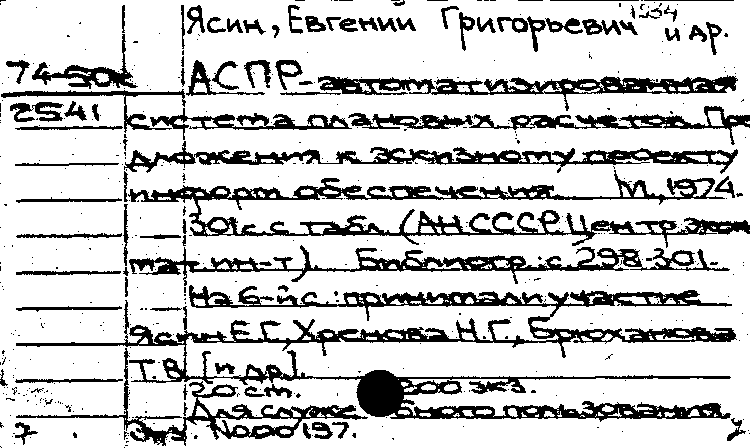 Ясин, Евгений Григорьевич 1934
и др.
74-50к АСПР-автоматизированная
2541 система плановых расчетов. Пре
дложения к эскизному проекту
информ обеспечения. М., 1974.
301с. с табл. (АН СССР. Центр. экон
мат. ин-т). Библиогр.: с. 298-301.
На 6-й с.: принимали участие
Ясин Е.Г., Хренова Н.Г., Брюханова
Т.В. [и др.].
20 ст. 800 экз.
Для служебного пользования.
Экз. No00197.